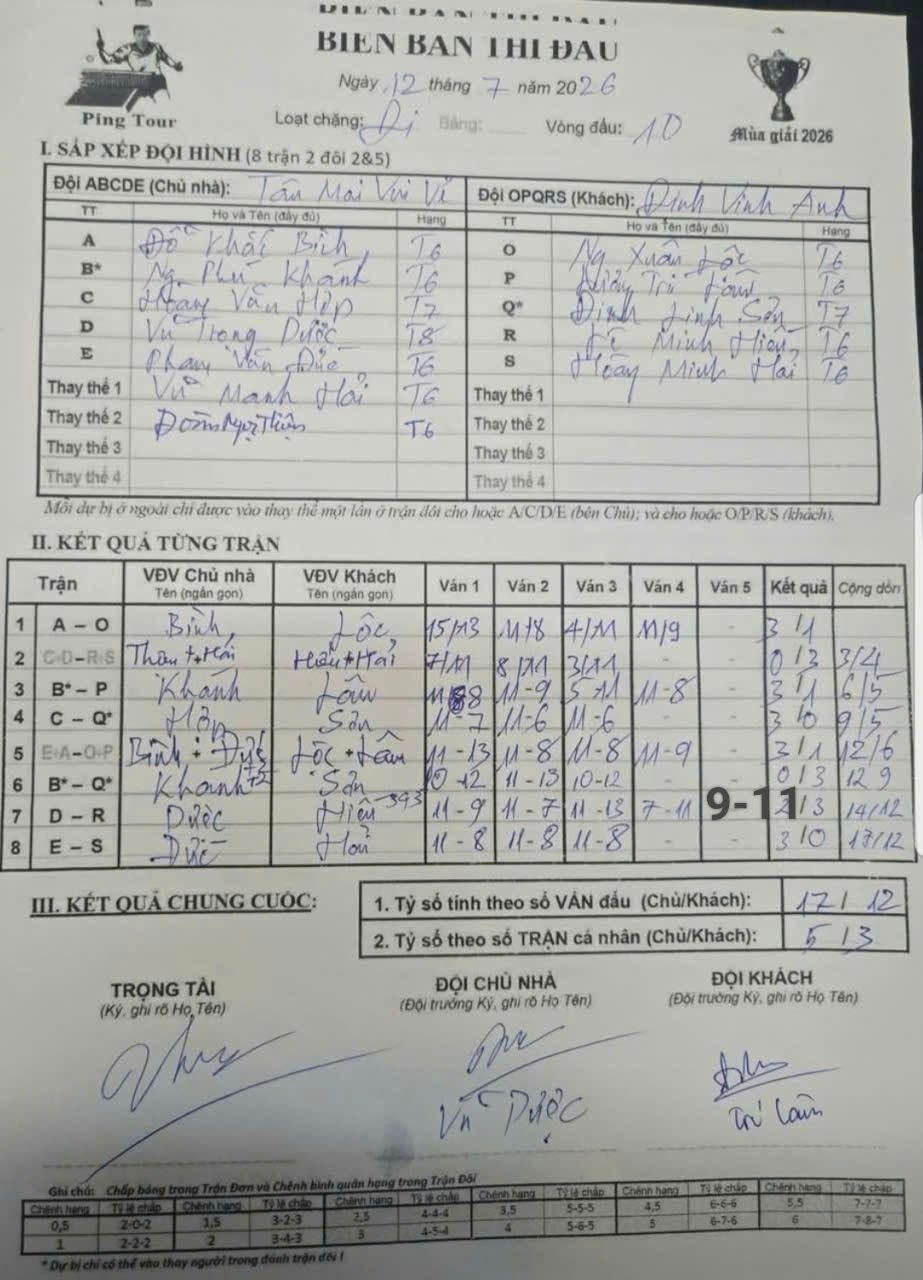 BIEN BAN THI ĐAU
BIEN BAN THI ĐAU
Ngày 12 tháng 7 năm 2026
Ping Tour
Loạt chặng: Đi Bảng: Vòng đấu: 10
Mùa giải 2026
I. SẮP XẾP ĐỘI HÌNH (8 trận 2 đôi 2&5)
Đội ABCDE (Chủ nhà): Tân Mai Vui Vẻ Đội OPQRS (Khách): Đinh Vinh Anh
TT Họ và Tên (đầy đủ) Hạng TT Họ và Tên (đầy đủ) Hạng
A Đỗ Khắc Bình T6 O Ng Xuân Lộc T6
B* Ng Phú Khánh T6 P Trí Lâm T6
C Hoàng Văn Hợp T7 Q* Đinh Linh Sơn T7
D Vũ Trọng Dược T8 R Lê Minh Hiếu T6
E Phạm Văn Đức T6 S Hoàng Minh Hải T6
Thay thế 1 Vũ Mạnh Hải T6 Thay thế 1
Thay thế 2 Đoàn Ngọc T6 Thay thế 2
Thay thế 3 Thay thế 3
Thay thế 4 Thay thế 4
Mỗi dự bị ở ngoài chỉ được vào thay thế một lần ở trận đôi cho hoặc A/C/D/E (bên Chủ); và cho hoặc O/P/R/S (khách).
II. KẾT QUẢ TỪNG TRẬN
Trận VĐV Chủ nhà VĐV Khách Ván 1 Ván 2 Ván 3 Ván 4 Ván 5 Kết quả Cộng dồn
Tên (ngắn gọn) Tên (ngắn gọn)
1 A – O Bình Lộc 15/13 11/8 4/11 11/9 - 3/1
2 C+D–R+S + Hải Hiếu + Hải 7/11 8/11 3/11 - - 0/3 3/4
3 B* – P Khánh Lâm 11 8 11-9 5-11 11-8 - 3/1 6/5
4 C – Q* Hợp Sơn 11-7 11-6 11-6 - - 3/0 9/5
5 E+A–O+P Bình + Đức Lộc + Lâm 11-13 11-8 11-8 11-9 - 3/1 12/6
6 B* – Q* Khanh Sơn 10-12 11-13 10-12 - - 0/3 12 9
7 D – R Dược Hiếu 11-9 11-7 11-13 7-11 9-11 2/3 14/12
8 E – S Đức Hải 11-8 11-8 11-8 - - 3/0 17/12
III. KẾT QUẢ CHUNG CUỘC:
1. Tỷ số tính theo số VÁN đấu (Chủ/Khách): 17/12
2. Tỷ số theo số TRẬN cá nhân (Chủ/Khách): 5/3
TRỌNG TÀI ĐỘI CHỦ NHÀ ĐỘI KHÁCH
(Ký, ghi rõ Họ Tên) (Đội trưởng Ký, ghi rõ Họ Tên) (Đội trưởng Ký, ghi rõ Họ Tên)
Vũ Dược
Trí Lâm
Ghi chú: Chấp bóng trong Trận Đơn và Chênh bình quân hạng trong Trận Đôi
Chênh hạng Tỷ lệ chấp Chênh hạng Tỷ lệ chấp Chênh hạng Tỷ lệ chấp Chênh hạng Tỷ lệ chấp Chênh hạng Tỷ lệ chấp Chênh hạng Tỷ lệ chấp
0,5 2-0-2 1,5 3-2-3 2,5 4-4-4 3,5 5-5-5 4,5 6-6-6 5,5 7-7-7
1 2-2-2 2 3-4-3 3 4-5-4 4 5-6-5 5 6-7-6 6 7-8-7
* Dự bị chỉ có thể vào thay người trong đánh trận đôi !